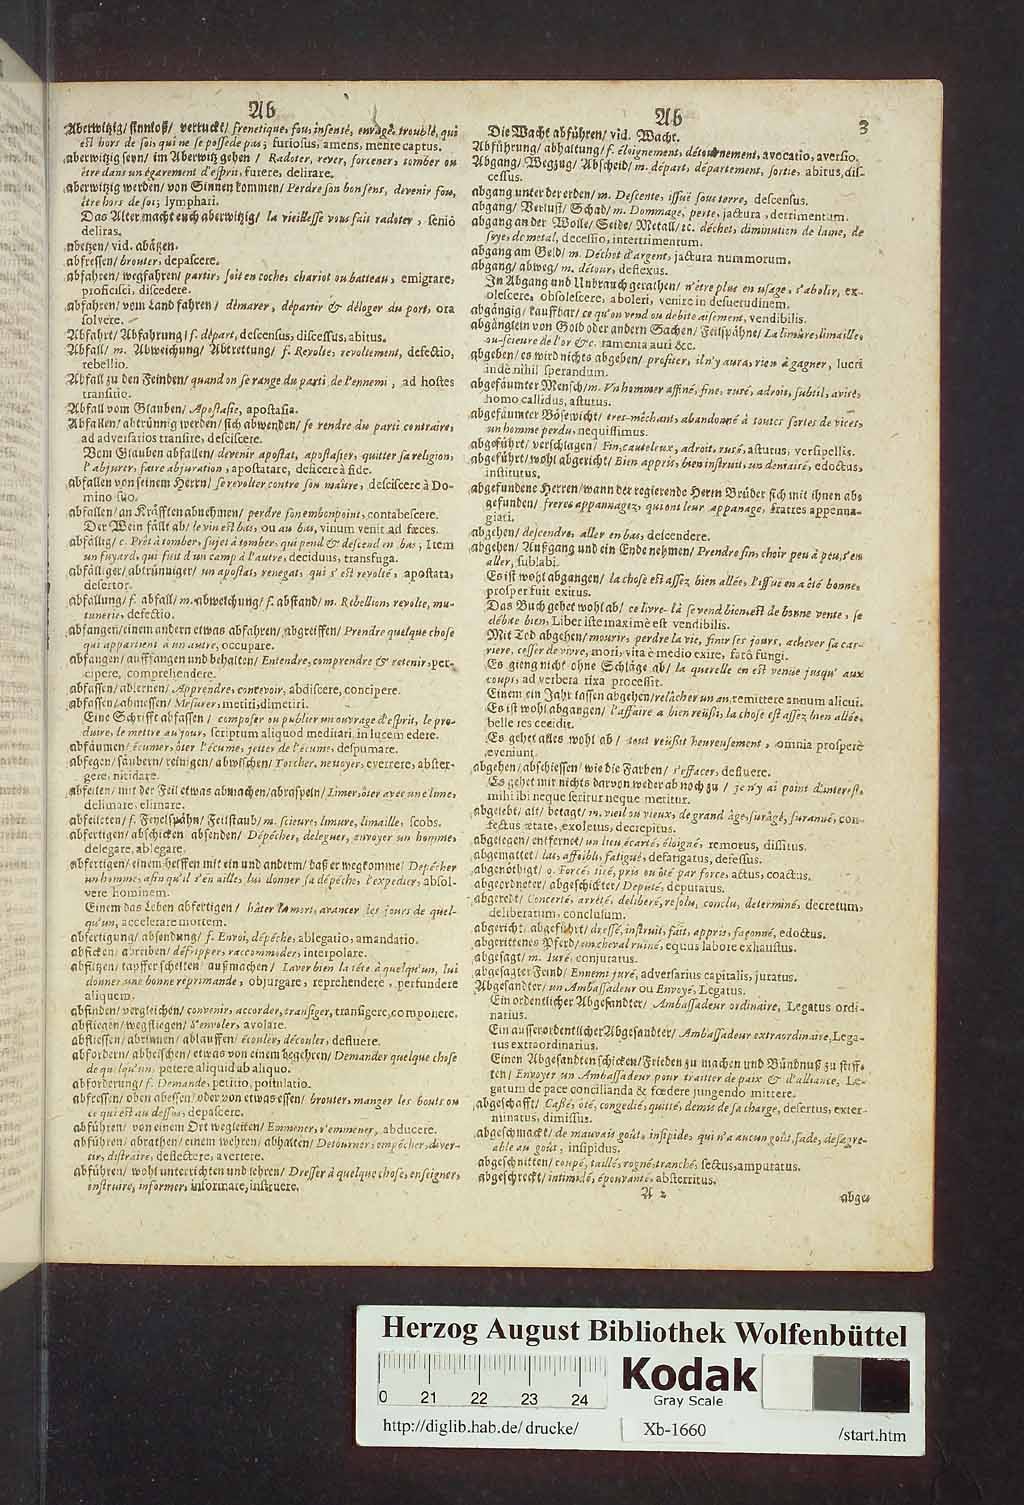 Ab
Aberwitzig/ sinnloß/ verruckt/ frenetique, fou, insensé, enragé, troublé, qui
est hors de soi, qui ne se possede pas; furiosus, amens, mente captus.
aberwitzig seyn/ im Aberwitz gehen/ Radoter, rever, forcener, tomber ou
être dans un égarement d'esprit, furere, delirare.
aberwitzig werden/ von Sinnen kommen/ Perdre son bon sens, devenir fou,
être hors de soi; lymphari.
Das Alter macht euch aberwitzig/ la vieillesse vous fait radoter, seniô
deliras.
abetzen/ vid. abätzen.
abfressen/ brouter, depascere.
abfahren/ wegfahren/ partir, soit en coche, chariot ou batteau, emigrare,
proficisci, discedere.
abfahren/ vom Land fahren/ démarer, départir & déloger du port, ora
solvere.
Abfahrt/ Abfahrung/ f. départ, descensus, discessus, abitus.
Abfall/ m. Abweichung/ Abtrettung/ f. Revolte, revoltement, defectio,
rebellio.
Abfall zu den Feinden/ quand on se range du parti de l'ennemi, ad hostes
transitio.
Abfall vom Glauben/ Apostasie, apostasia.
Abfallen/ abtrünnig werden/ sich abwenden/ se rendre du parti contraire,
ad adversarios transire, desciscere.
Vom Glauben abfallen/ devenir apostat, apostasier, quitter sa religion,
l'abjurer, faire abjuration, apostatare, deficere à fide.
abfallen von seinem Herrn/ se revolter contre son maître, desciscere à Do-
mino suo.
abfallen/ an Kräfften abnehmen/ perdre son embonpoint, contabescere.
Der Wein fällt ab/ le vin est bas, ou au bas, vinum venit ad fæces.
abfällig/ c. Prêt à tomber, sujet à tomber, qui pend & descend en bas; Item
un fuyard, qui fuit d'un camp à l'autre, deciduus, transfuga.
abfälliger/ abtrünniger/ un apostat, renegat, qui s'est revolté, apostata,
desertor.
abfallung/ f. abfall/ m. abweichung/ f. abstand/ m. Rebellion, revolte, mu-
tunerie, defectio.
abfangen/ einem andern etwas abfahren/ abgreiffen/ Prendre quelque chose
qui appartient à un autre, occupare.
abfangen/ auffangen und behalten/ Entendre, comprendre & retenir, per-
cipere, comprehendere.
abfassen/ ablernen/ Apprendre, concevoir, addiscere, concipere.
abfassen/ abmessen/ Mesurer, metiri, dimetiri.
Eine Schrifft abfassen/ composer ou publier un ouvrage d'esprit, le pro-
duire, le mettre au jour, scriptum aliquod meditari, in lucem edere.
abfäumen/ écumer, ôter l'écume, jetter de l'écume, despumare.
abfegen/ säubern/ reinigen/ abwischen/ Torcher, nettoyer, everrere, abster-
gere, nitidare.
abfeilen/ mit der Feil etwas abmachen/ abraspeln/ Limer, ôter avec une lime,
delimare, elimare.
abfeileten/ f. Feyelspähn/ Feilstaub/ m. scieure, limure, limaille, scobs.
abfertigen/ abschicken absenden/ Dépécher, deleguer, envoyer un homme,
delegare, ablegare.
abfertigen/ einem helffen mit ein und anderm/ daß er wegkomme/ Depécher
un homme, afin qu'il s'en aille, lui donner sa dépéche, l'expedier, absol-
vere hominem.
Einem das Leben abfertigen/ hâter la mort, avancer les jours de quel-
qu'un, accelerare mortem.
abfertigung/ absendung/ f. Envoi, dépéche, ablegatio, amandatio.
abficken/ abreiben/ défripper, raccommoder, interpolare.
abfiltzen/ tapffer schelten/ außmachen/ Laver bien la tête à quelqu'un, lui
donner une bonne reprimande, objurgare, reprehendere, perfundere
aliquem.
abfinden/ vergleichen/ convenir, accorder, transiger, transigere, componere.
abfliegen/ wegfliegen/ s'envoler, avolare.
abfliessen/ abrinnen/ ablauffen/ écouler, découler, defluere.
abfordern/ abheischen/ etwas von einem begehren/ Demander quelque chose
de quelqu'un, petere aliquid ab aliquo.
abforderung/ f. Demande, petitio, postulatio.
abfressen/ oben abessen/ oder von etwas essen/ brouter, manger les bouts ou
ce qui est au dessus, depascere.
abführen/ von einem Ort wegleiten/ Emmener, r'emmener, abducere.
abführen/ abrathen/ einem wehren/ abhalten/ Detourner, empécher, diver-
tir, distraire, deflectere, avertere.
abführen/ wohl unterrichten und lehren/ Dresser à quelque chose, enseigner,
instruire, informer, informare, instruere.
Ab
3
Die Wacht abführen/ vid. Wacht.
Abführung/ abhaltung/ f. éloignement, détournement, avocatio, aversio.
Abgang/ Wegzug/ Abscheid/ m. départ, département, sortie, abitus, dis-
cessus.
abgang unter der erden/ m. Descente, issuë sous terre, descensus.
abgang/ Verlust/ Schad/ m. Dommage, perte, jactura, detrimentum.
abgang an der Wolle/ Seide/ Metall/ ec. déchet, diminution de laine, de
soye, de metal, decessio, intertrimentum.
abgang am Geld/ m. Déchet d'argent, jactura nummorum.
abgang/ abweg/ m. détour, deflexus.
In Abgang und Unbrauch gerathen/ n'être plus en usage, s'abolir, ex-
olescere, obsolescere, aboleri, venire in desuetudinem.
abgängig/ kauffbar/ ce qu'on vend ou debite aisement, vendibilis.
abgänglein von Gold oder andern Sachen/ Feilspähne/ La limure, limaille,
ou-scieure de l'or &c. ramenta auri &c.
abgeben/ es wird nichts abgeben/ profiter, il n'y aura, rien à gagner, lucri
inde nihil sperandum.
abgefäumter Mensch/ m. Un hommer affiné, fine, rusé, adroit, subtil, avisé,
homo callidus, astutus.
abgefäumter Bösewicht/ tres-méchant, abandonné à toutes sortes de vices,
un homme perdu, nequissimus.
abgeführt/ verschlagen/ Fin, cauteleux, adroit, rusé, astutus, versipellis.
abgeführt/ wohl abgericht/ Bien appris, bien instruit, un deniaisé, edoctus,
institutus.
abgefundene Herren/ wann der regierende Herrn Brüder sich mit ihnen abs
gefunden/ freres appannagez, qui ont leur appanage, fratres appenna-
giati.
abgehen/ descendre, aller en bas, descendere.
abgehen/ Außgang und ein Ende nehmen/ Prendre fin, choir peu à peu, s'en
aller, sublabi.
Es ist wohl abgangen/ la chose est assez bien allée, l'issuë en a été bonne,
prosper fuit exitus.
Das Buch gehet wohl ab/ ce livre-là se vend bien, est de bonne vente, se
débite bien, Liber iste maximè est vendibilis.
Mit Tod abgehen/ mourir, perdre la vie, finir ses jours, achever sa car-
riere, cesser de vivre, mori, vita è medio exire, fatô fungi.
Es gieng nicht ohne Schläge ab/ la querelle en est venue jusqu' aux
coups, ad verbera rixa processit.
Einem ein Jahr lassen abgehen/ relâcher un an, remittere annum alicui.
Es ist wohl abgangen/ l'affaire a bien reüssi, la chose est assez bien allée,
belle res cecidit.
Es gehet alles wohl ab/ tout reüssit heureusement, omnia prosperè
eveniunt.
abgehen/ abschiessen/ wie die Farben/ s'effacer, defluere.
Es gehet mir nichts darvon weder ab noch zu/ je n'y ai point d'interest,
mihi ibi neque seritur neque meritur.
abgelebt/ alt/ betagt/ m. vieil ou vieux, de grand âge, surâgé, suranné, con-
fectus ætate, exoletus, decrepitus.
abgelegen/ entfernet/ un lieu écarté, éloigné, remotus, dissitus.
abgemattet/ las, affoibli, fatigué, defatigatus, defessus.
abgenöthigt/ o. Forcé, tiré, pris ou ôté par force, actus, coactus.
abgeordneter/ abgeschickter/ Deputé, deputatus.
abgeredt/ Concerté, arrêté, deliberé, resolu, conclu, determiné, decretum,
deliberatum, conclusum.
abgericht/ abgeführt/ dressé, instruit, fait, appris, façonné, edoctus.
abgerittenes Pferd/ un cheval ruiné, equus labore exhaustus.
abgesagt/ m. Juré, conjuratus.
abgesagter Feind/ Ennemi juré, adversarius capitalis, juratus.
Abgesandter/ un Ambassadeur ou Envoyé, Legatus.
Ein ordentlicher Abgesandter/ Ambassadeur ordinaire, Legatus ordi-
narius.
Ein ausserordentlicher Abgesandter/ Ambassadeur extraordinaire, Lega-
tus extraordinarius.
Einen Abgesandten schicken/ Frieden zu machen und Bündnuß zu stiff-
ten/ Envoyer un Ambassadeur pour traitter de paix & d'alliance, Le-
gatum de pace concilianda & fœdere jungendo mittere.
abgeschafft/ Cassé, ôté, congedié, quitté, demis de sa charge, desertus, exter-
minatus, dimissus.
abgeschmackt/ de mauvais goût, insipide, qui n'a aucun goût, fade, desagre-
able au goût, insipidus.
abgeschnitten/ coupé, taillé, rogné, tranché, sectus, amputatus.
abgeschreckt/ intimidé, épouvanté, absterritus.
A 2
abge
Herzog August Bibliothek Wolfenbüttel
Kodak
Gray Scale
0 21 22 23 24
http://diglib.hab.de/ drucke/
Xb-1660
/start.htm